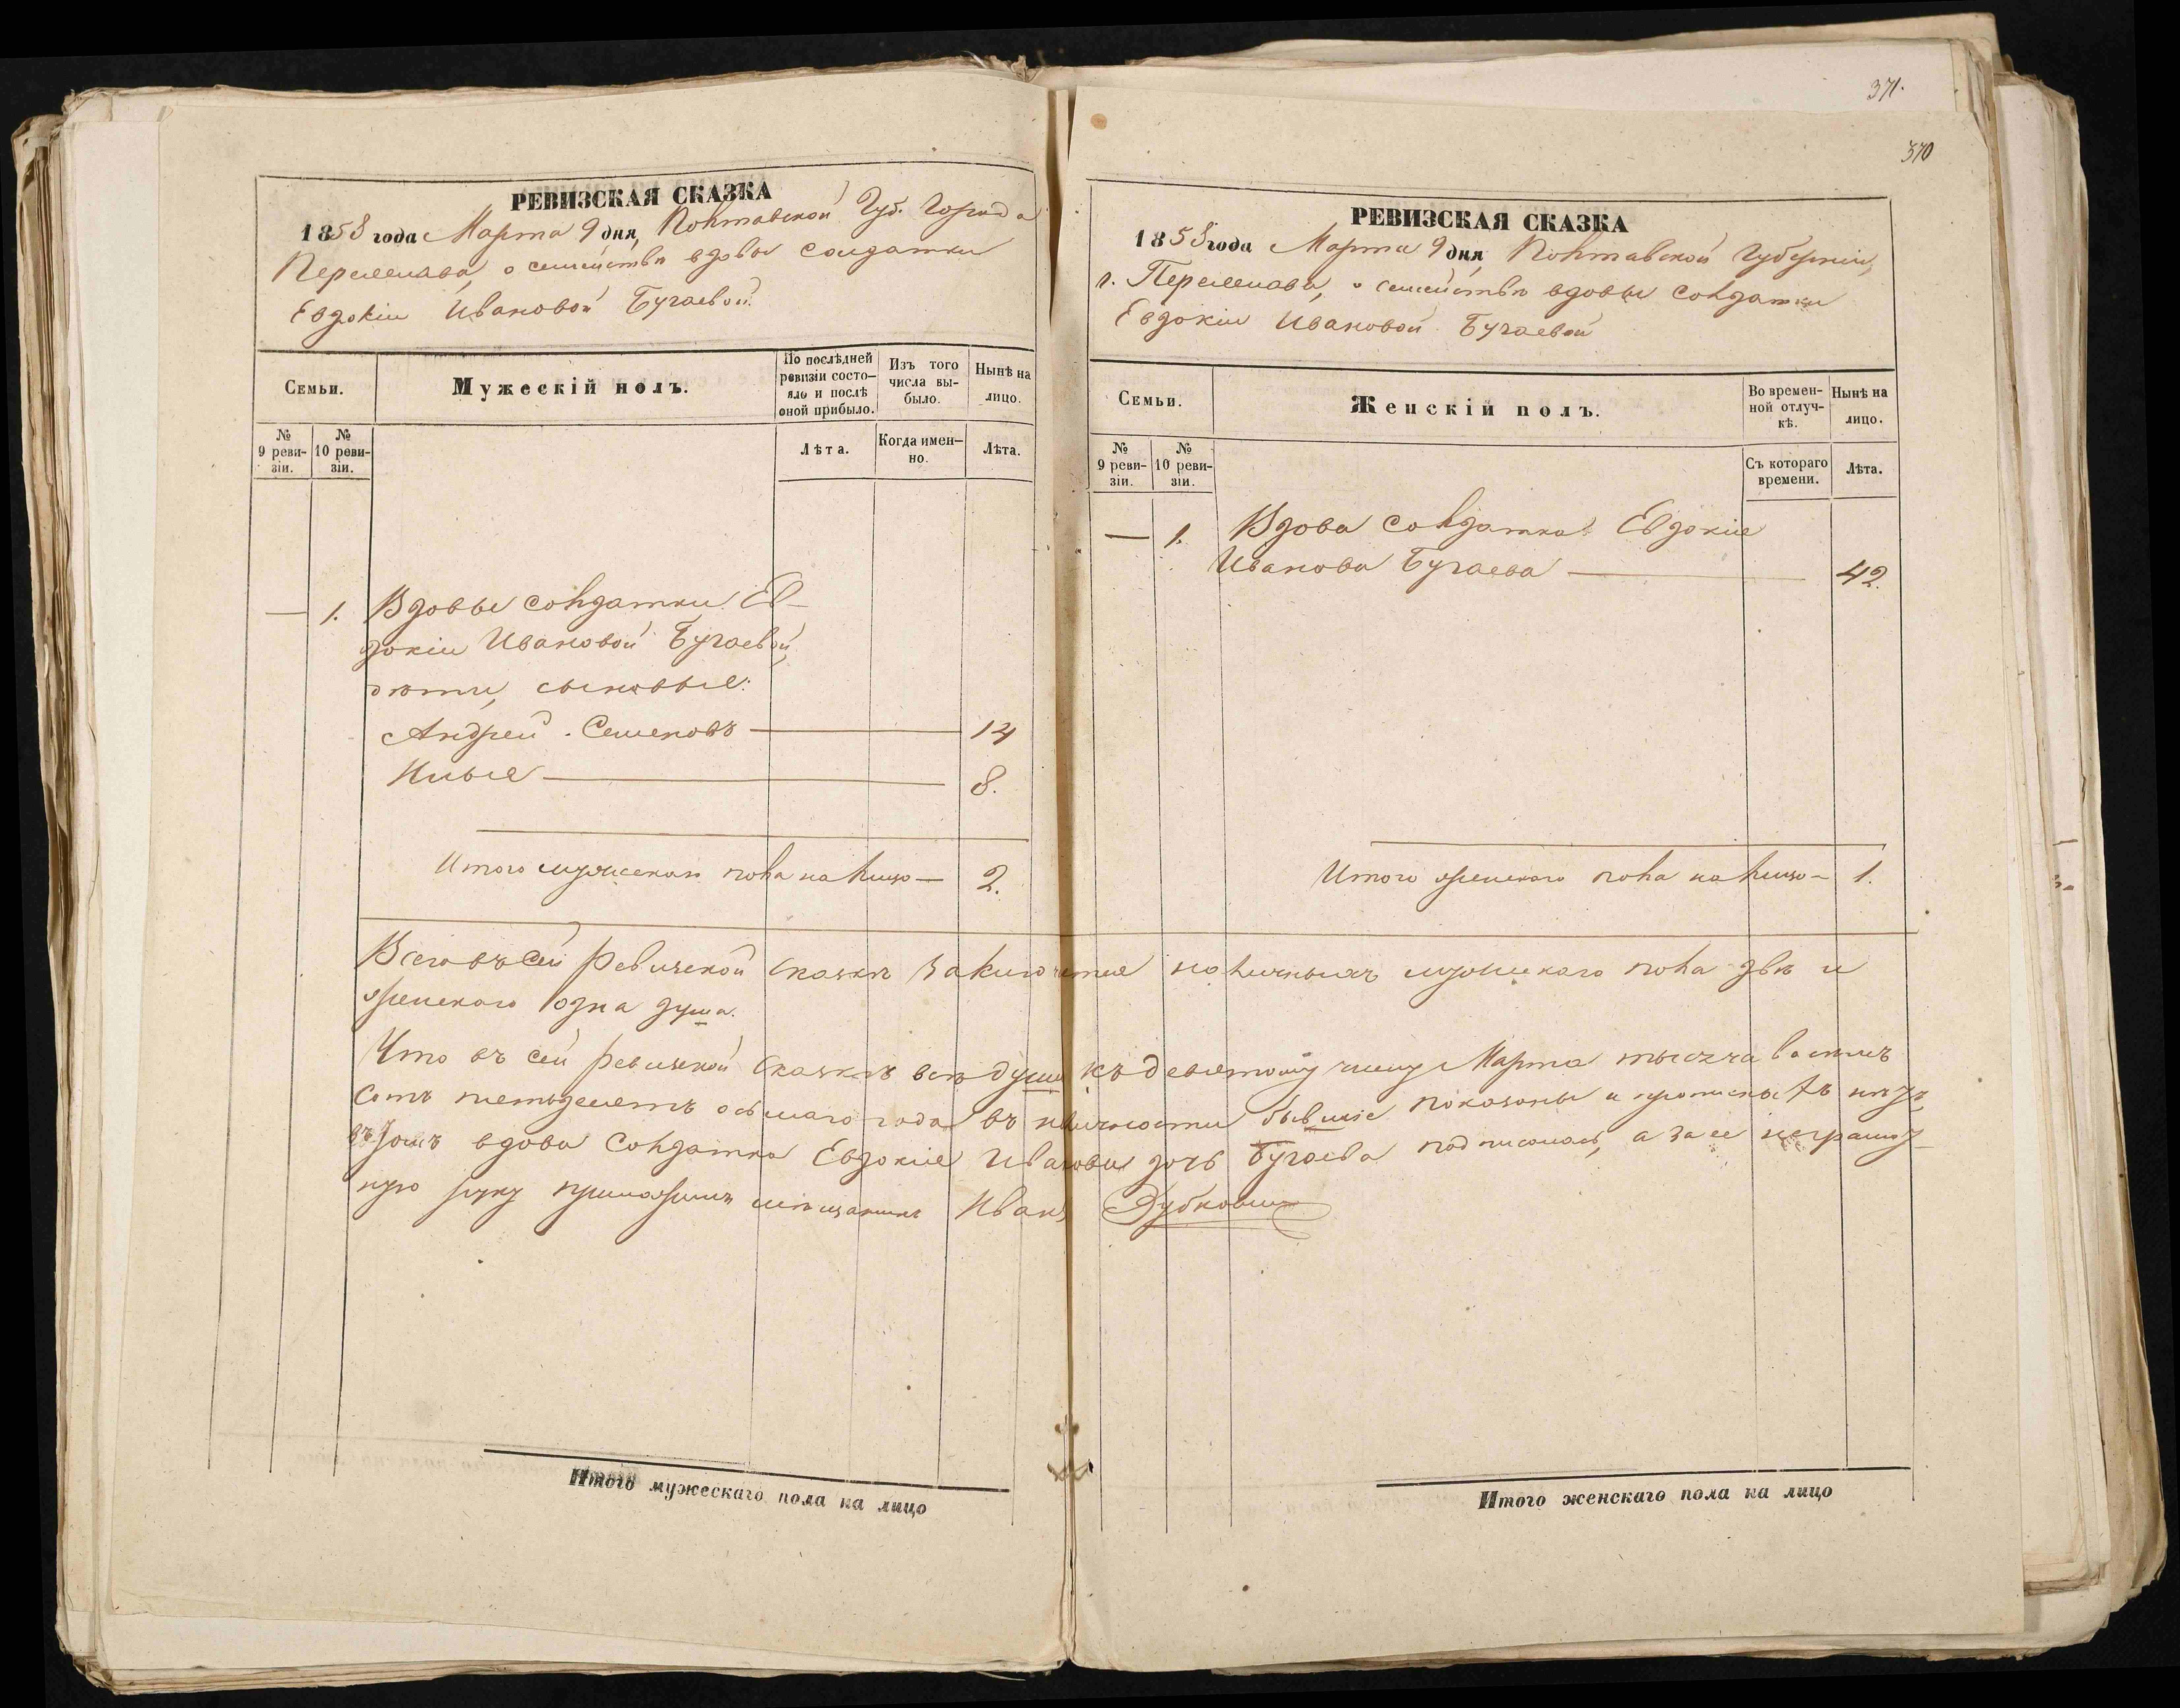 371.
370
РЕВИЗСКАЯ СКАЗКА
1858 года Марта 9 дня, Полтавской Губ. Города
Переяслава, о семействѣ вдовы солдатки
Евдокіи Ивановой Бугаевой.
Семьи.
Мужескій полъ.
По послѣдней ревизіи состо-
яло и послѣ оной прибыло.
Изъ того числа вы-
было.
Нынѣ на лицо.
№ 9 реви-
зіи.
№ 10 реви-
зіи.
Лѣта.
Когда имен-
но.
Лѣта.
— 1. Вдовы солдатки Ев-
докіи Ивановой Бугаевой,
дѣти, сыновья:
Андрей Семеновъ — 14
Илья — 8.
Итого мужескаго пола на лицо — 2.
РЕВИЗСКАЯ СКАЗКА
1858 года Марта 9 дня, Полтавской Губерніи,
г. Переяслава, о семействѣ вдовы солдатки
Евдокіи Ивановой Бугаевой
Семьи.
Женскій полъ.
Во времен-
ной отлуч-
кѣ.
Нынѣ на лицо.
№ 9 реви-
зіи.
№ 10 реви-
зіи.
Съ котораго времени.
Лѣта.
— 1. Вдова солдатка Евдокія
Иванова Бугаева — 42.
Итого женскаго пола на лицо — 1.
Всего въ сей ревизской сказкѣ заключается наличныхъ мужескаго пола двѣ и
женскаго одна душа.
Что въ сей ревизской сказкѣ всѣ души къ девятому числу Марта тысяча восемъ
сотъ пятьдесятъ осьмаго года въ наличности бывшіе показаны и прописныхъ нѣтъ,
въ томъ вдова солдатка Евдокія Иванова дочь Бугаева подписалась, а за ее неграмот-
ную руку приложилъ мѣщанинъ Иванъ
Итого мужескаго пола на лицо
Итого женскаго пола на лицо